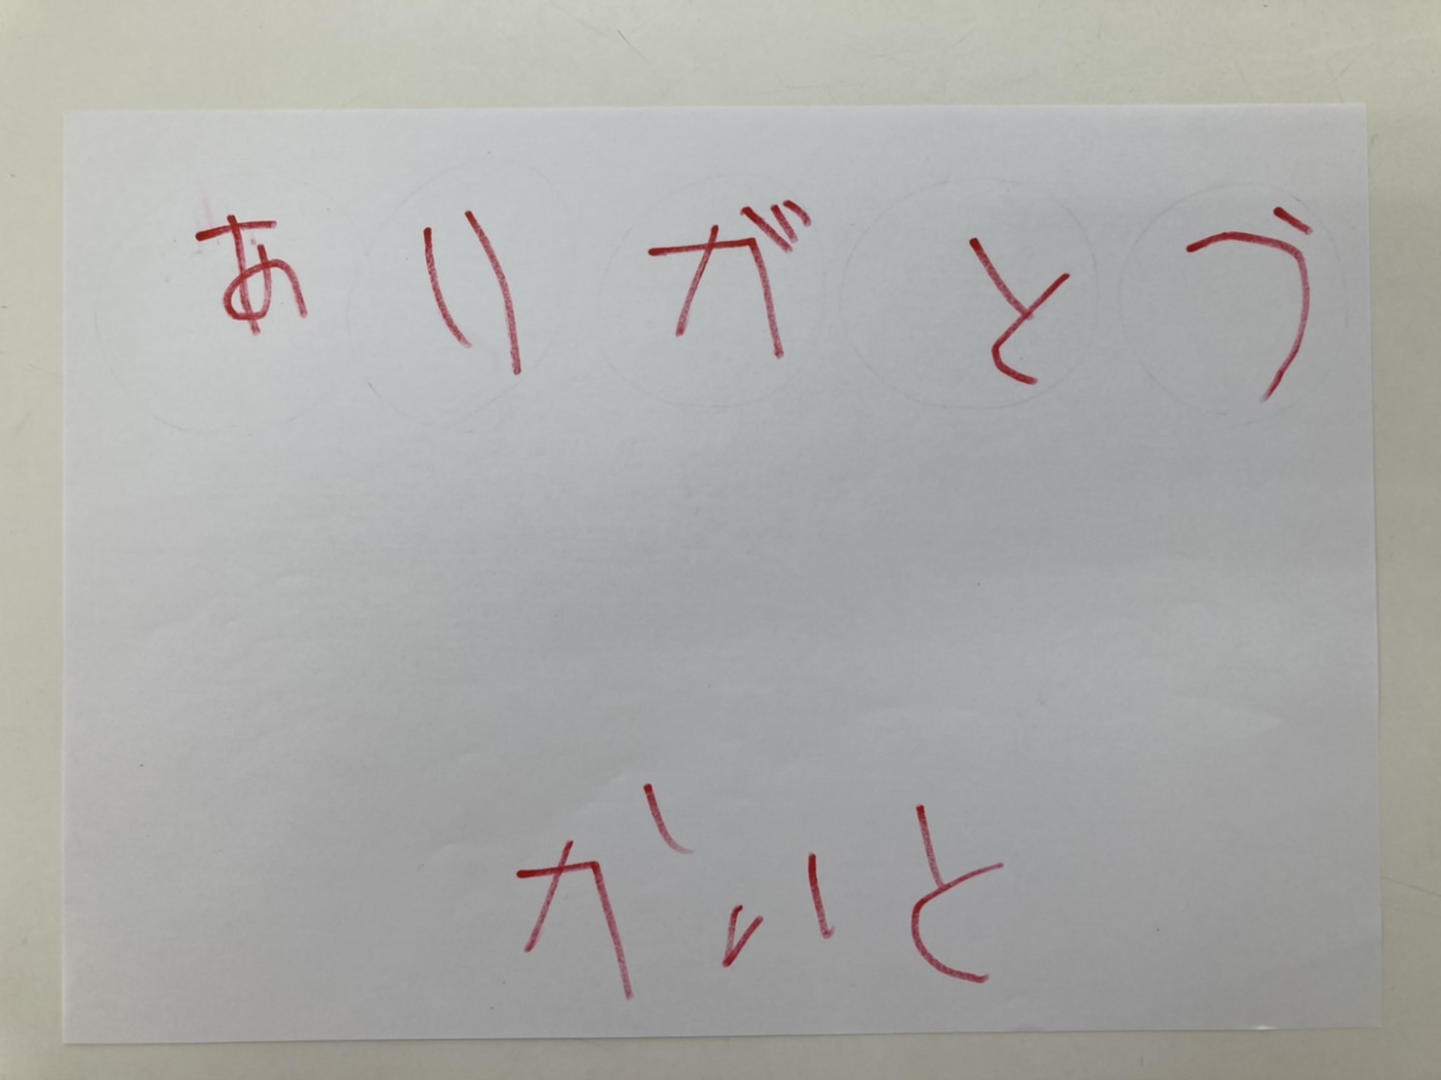 ありがとう
かいと